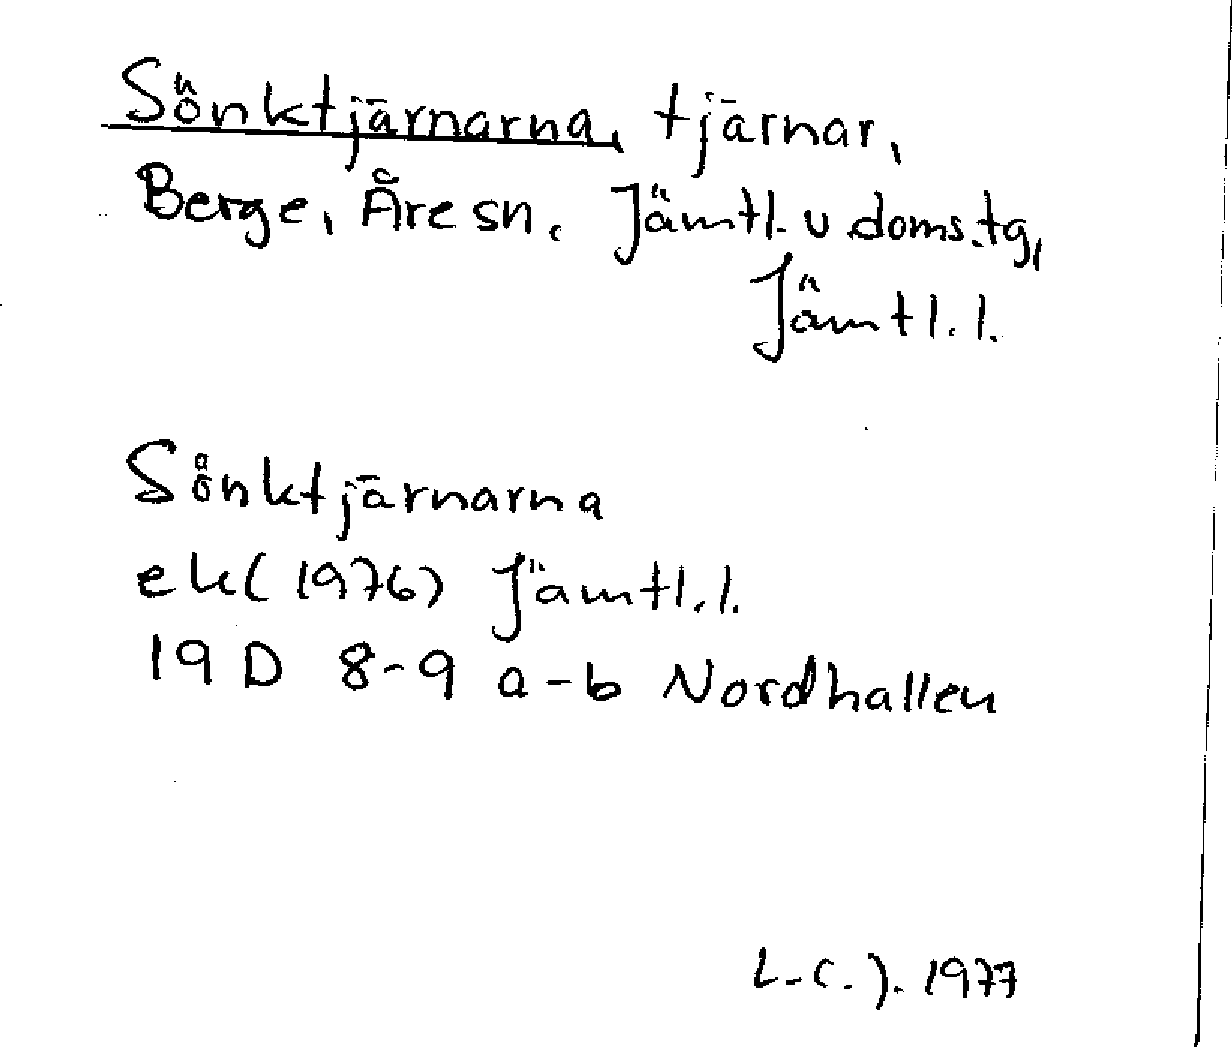 Sönktjärnarna, tjärnar,
Berge, Åre sn, Jämtl. v doms.tg,
Jämtl. l.
Sönktjärnarna
ek (1976) Jämtl. l.
19 D 8-9 a-b Nordhallen
L-C. J. 1977